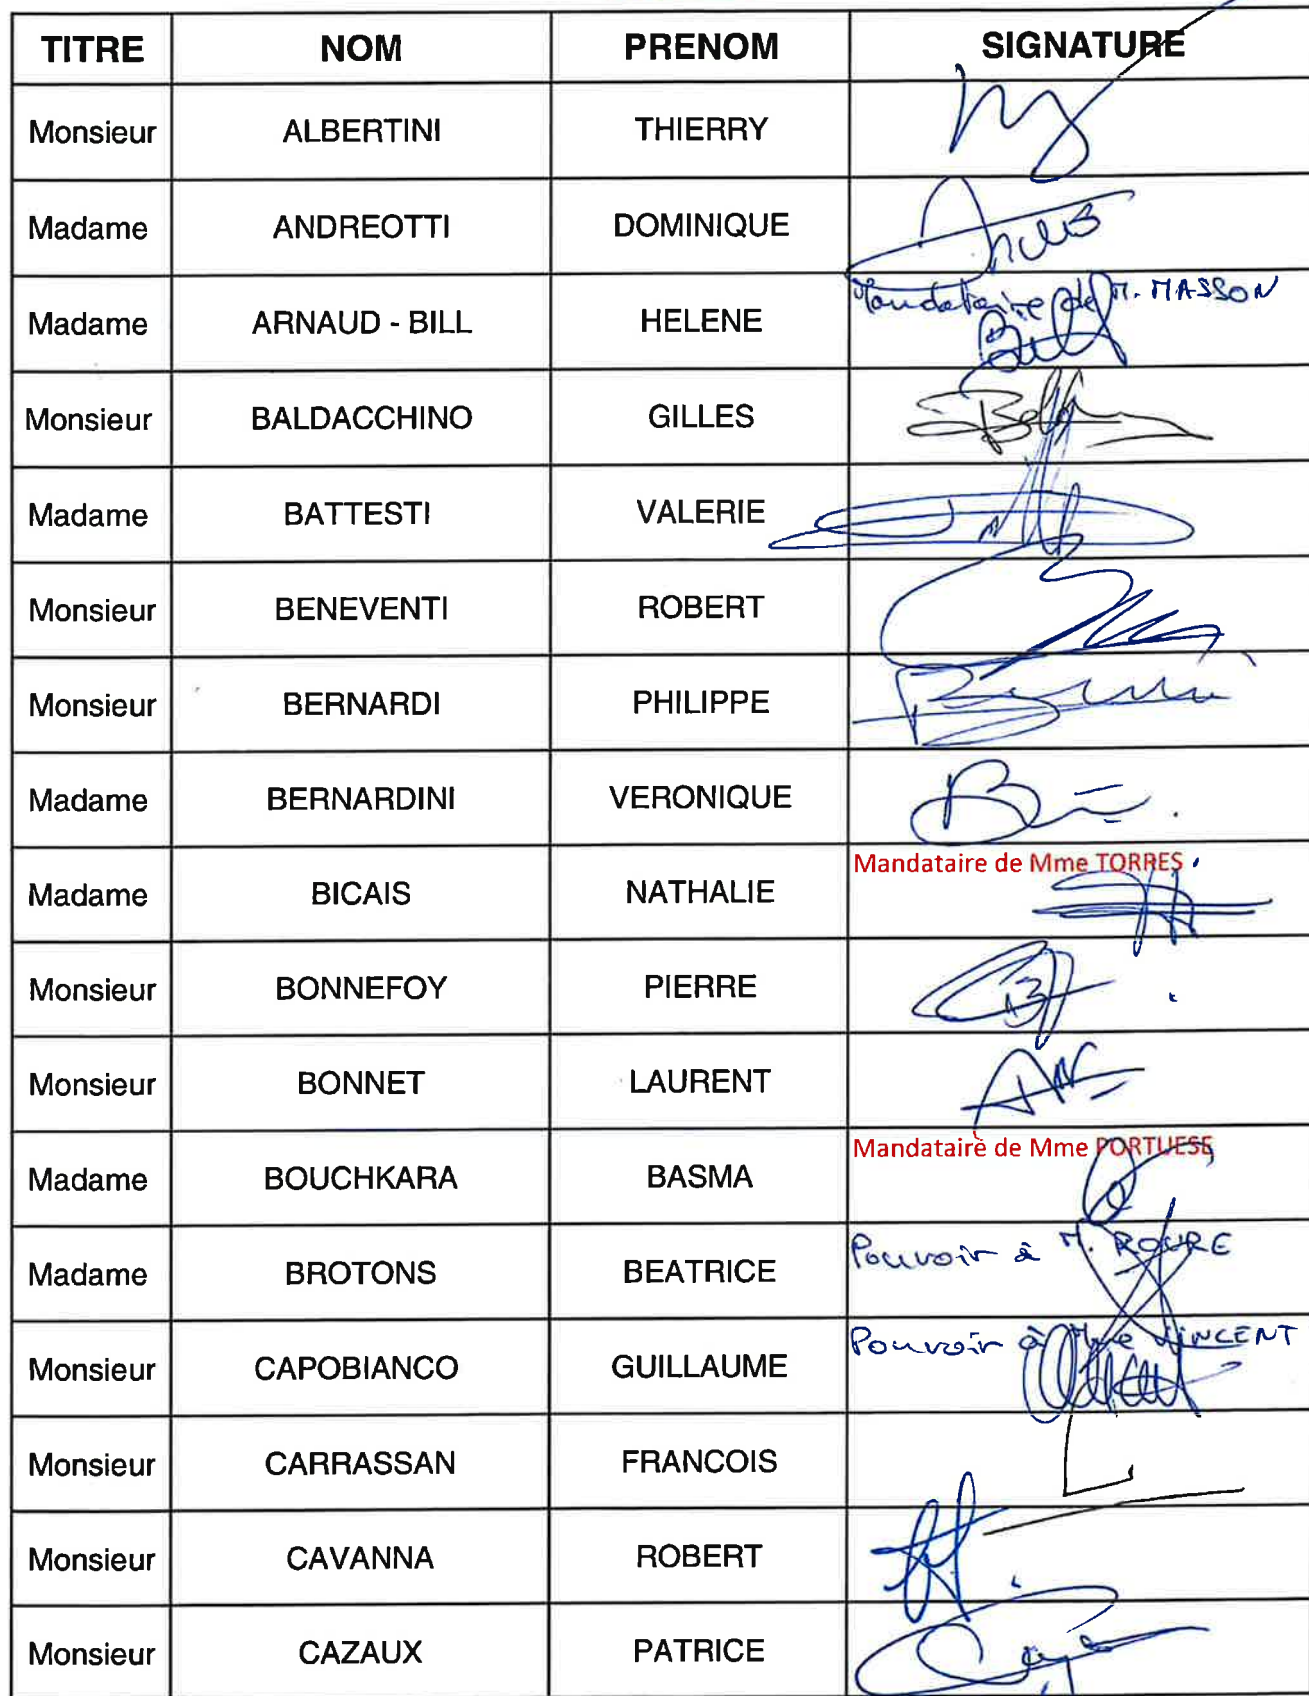 TITRE NOM PRENOM SIGNATURE
Monsieur ALBERTINI THIERRY
Madame ANDREOTTI DOMINIQUE
Madame ARNAUD - BILL HELENE Mandataire de M. MASSON
Monsieur BALDACCHINO GILLES
Madame BATTESTI VALERIE
Monsieur BENEVENTI ROBERT
Monsieur BERNARDI PHILIPPE
Madame BERNARDINI VERONIQUE
Madame BICAIS NATHALIE Mandataire de Mme TORRES
Monsieur BONNEFOY PIERRE
Monsieur BONNET LAURENT
Madame BOUCHKARA BASMA Mandataire de Mme PORTUESE
Madame BROTONS BEATRICE Pouvoir à M. ROURE
Monsieur CAPOBIANCO GUILLAUME Pouvoir à Mme VINCENT
Monsieur CARRASSAN FRANCOIS
Monsieur CAVANNA ROBERT
Monsieur CAZAUX PATRICE